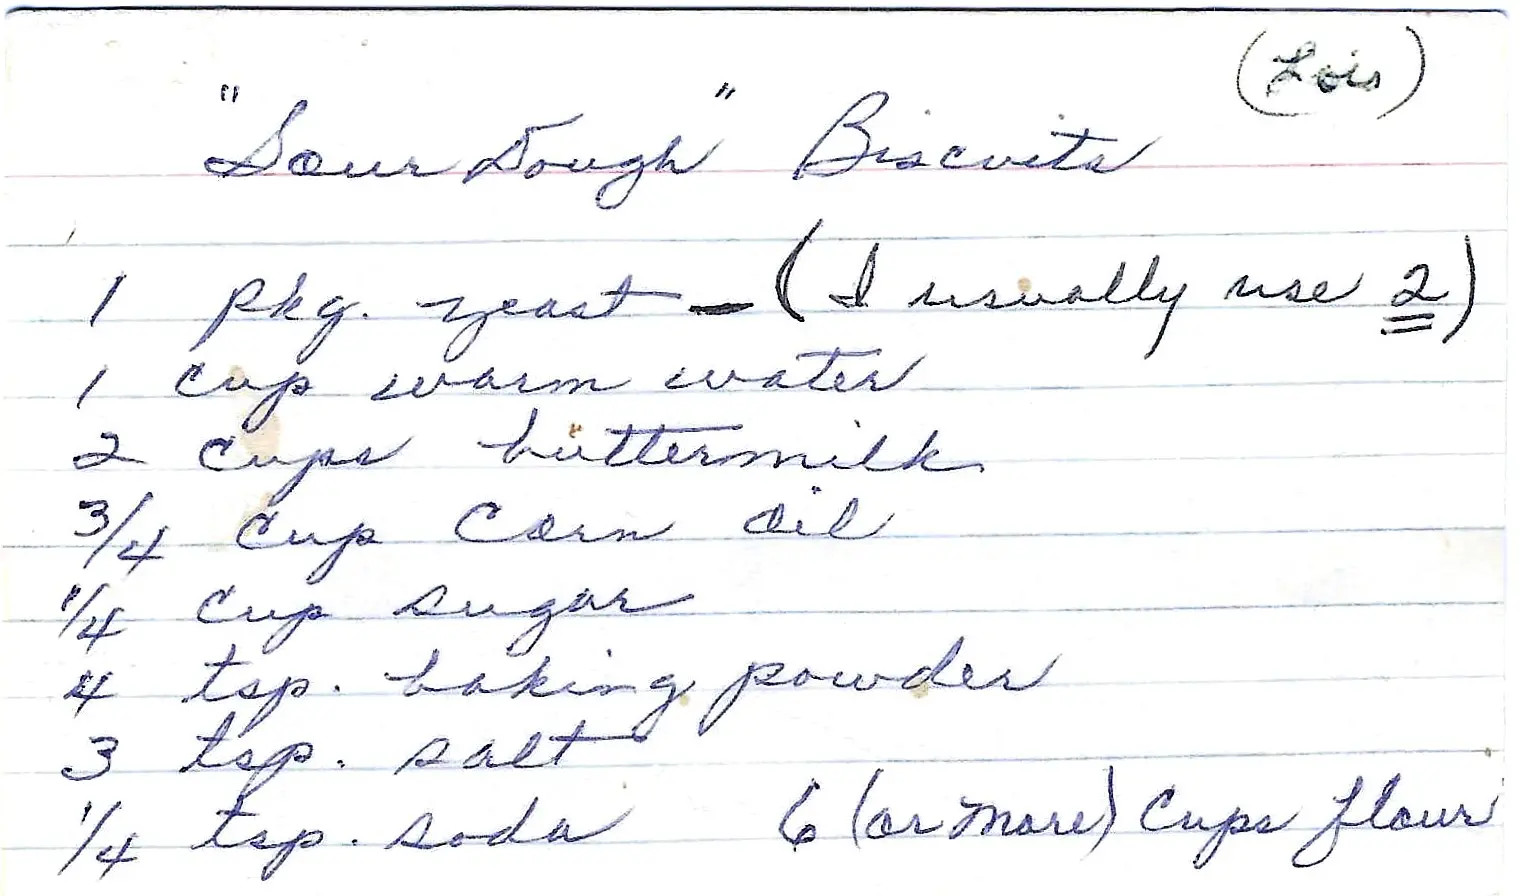 (Lois)
"Sour Dough" Biscuits
1 pkg. yeast - (I usually use 2)
1 cup warm water
2 cups buttermilk
3/4 cup corn oil
1/4 cup sugar
4 tsp. baking powder
3 tsp. salt
1/4 tsp. soda 6 (or more) cups flour